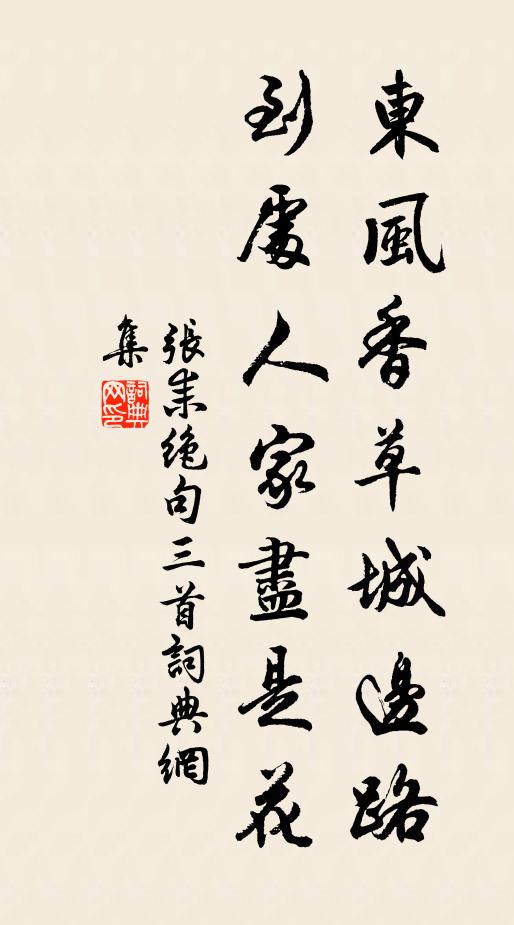 東風香草城邊路
到處人家盡是花
張耒絶句三首詞典網
集
詞典
网印